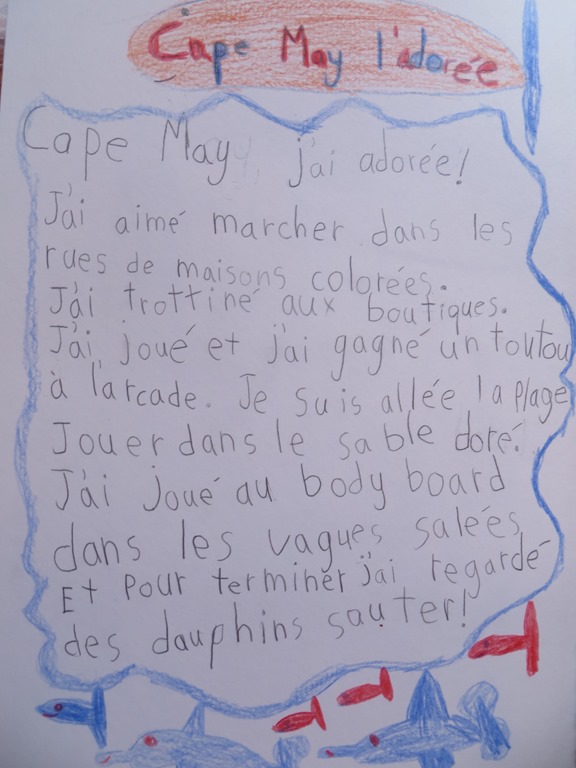 Cape May l'adorée
Cape May, j'ai adorée!
J'ai aimé marcher dans les
rues de maisons colorées.
J'ai trottiné aux boutiques.
J'ai, joué et j'ai gagné un toutou
à l'arcade. Je suis allée la plage
Jouer dans le sable doré.
J'ai joué au body board
dans les vagues salées
Et pour terminer j'ai regardé
des dauphins sauter!